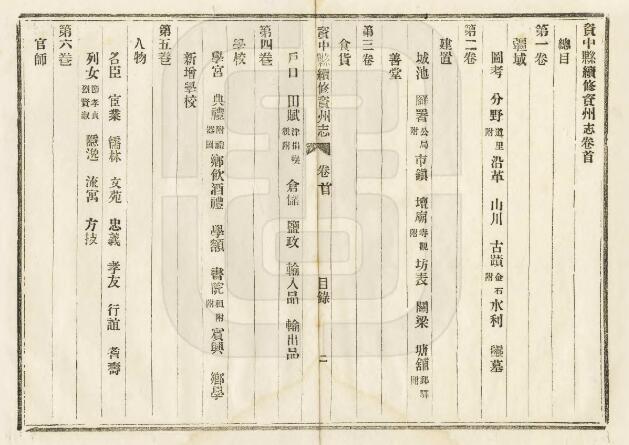 資中縣續修資州志卷首
總目
第一卷
疆域
圖考 分野道里附 沿革 山川 古蹟金石附 水利 塋墓
第二卷
建置
城池 廨署公局附 市鎮 壇廟寺觀附 坊表 關梁 塘舖郵驛附
善堂
第三卷
食貨
戶口 田賦津捐附 倉儲 鹽政 輸入品 輸出品
資中縣續修資州志 卷首 目錄 二
第四卷
學校
學宮 典禮 鄉飲酒禮 學額 書院 賓興 鄉學
新增學校
第五卷
人物
名臣 宦業 儒林 文苑 忠義 孝友 行誼 耆壽
列女節孝貞烈賢淑 隱逸 流寓 方技
第六卷
官師